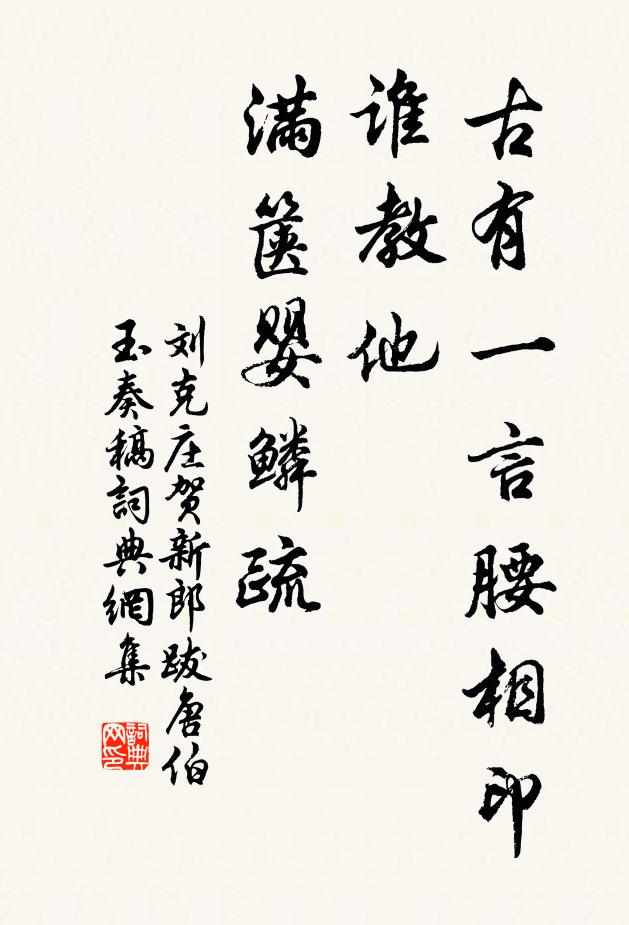 古有一言腰相印
谁教他
满箧婴鳞疏
刘克庄贺新郎跋唐伯
玉奏稿詞典網集
詞典网印